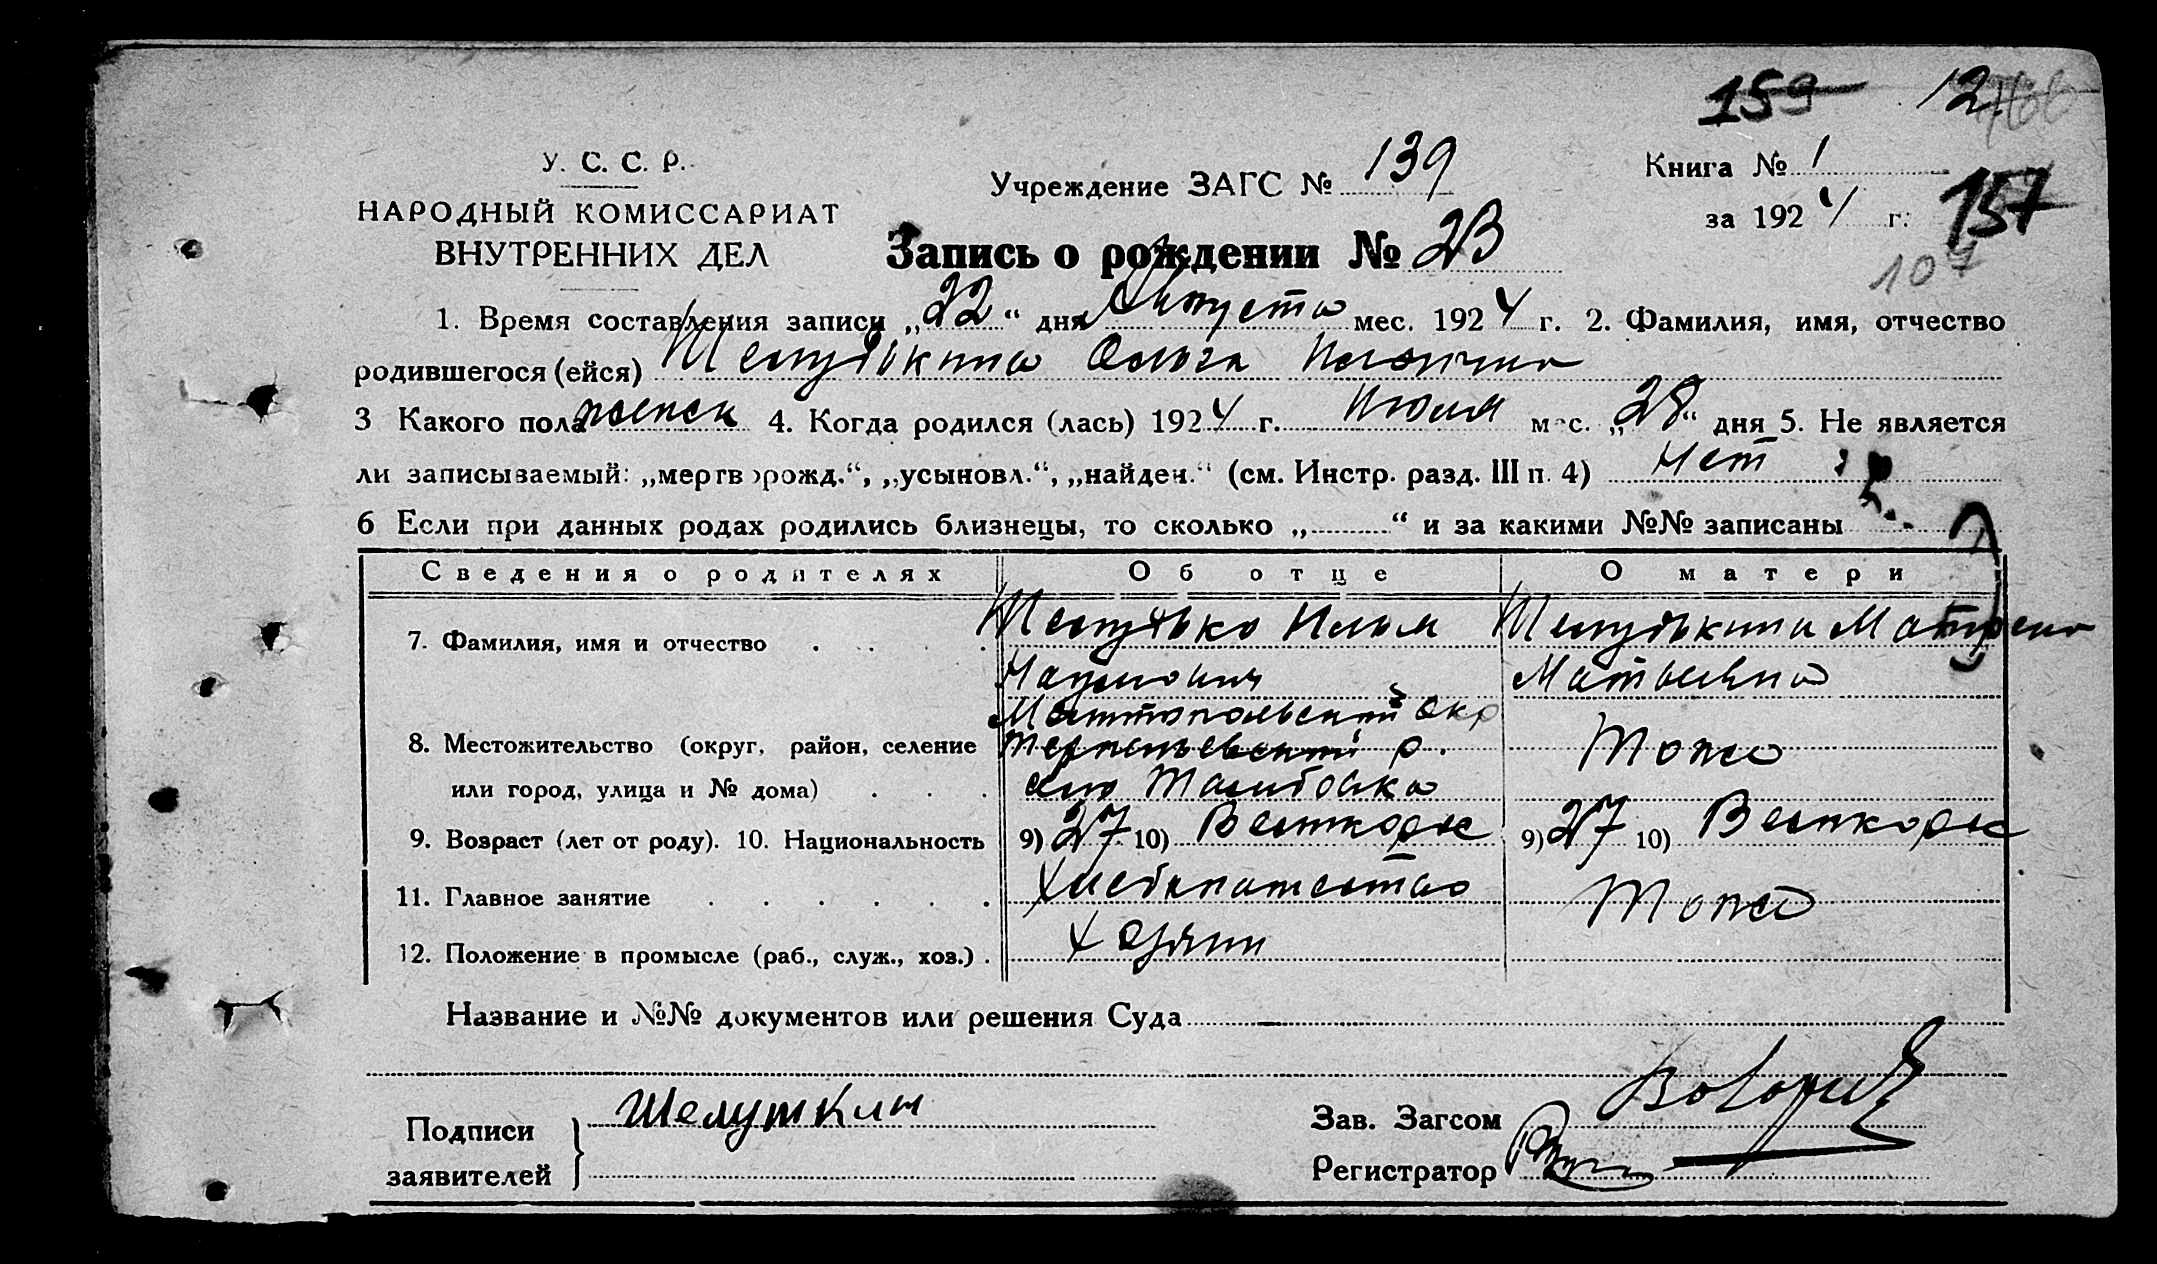 159 12 166
У. С. С. Р.
НАРОДНЫЙ КОМИССАРИАТ
ВНУТРЕННИХ ДЕЛ
Учреждение ЗАГС № 139
Книга № 1
за 1924 г.
157
107
Запись о рождении № 23
1. Время составления записи „22“ дня Августа мес. 1924 г. 2. Фамилия, имя, отчество
родившегося (ейся) Ольга
3 Какого пола женск 4. Когда родился (лась) 1924 г. Июля мес. „28“ дня 5. Не является
ли записываемый: „мертворожд.“, „усыновл.“, „найден.“ (см. Инстр. разд. III п. 4) Нет
6 Если при данных родах родились близнецы, то сколько „ “ и за какими №№ записаны
Сведения о родителях Об отце О матери
7. Фамилия, имя и отчество Илья Матрена
Наумович Матвеевна
Мелитопольский окр
8. Местожительство (округ, район, селение Терпеньевский р. Тоже
или город, улица и № дома) село
9. Возраст (лет от роду). 10. Национальность 9) 27 10) Великорос 9) 27 10) Великорос
11. Главное занятие Хлебопашество Тоже
12. Положение в промысле (раб., служ., хоз.) Хозяин
Название и №№ документов или решения Суда
Подписи
заявителей
Шелуткин
Зав. Загсом
Регистратор